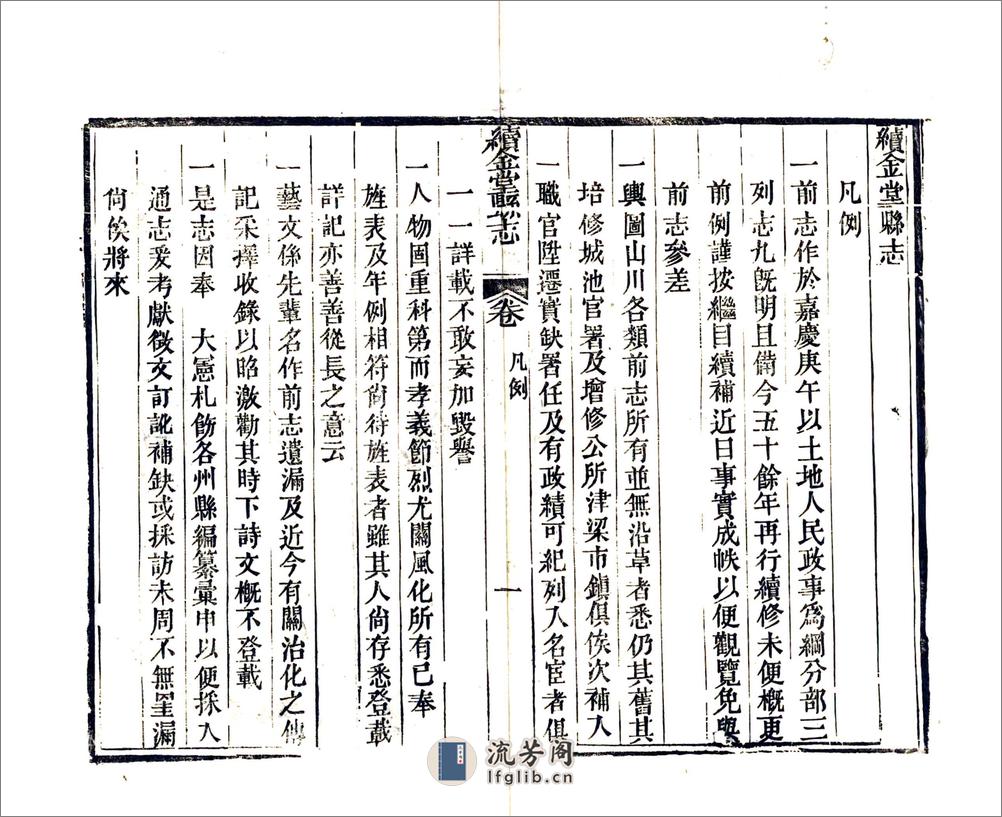 續金堂縣志
凡例
一前志作於嘉慶庚午以土地人民政事爲綱分部三
列志九既明且備今五十餘年再行續修未便概更
前例謹按繼目續補近日事實成帙以便觀覽免與
前志參差
一輿圖山川各類前志所有並無沿革者悉仍其舊其
培修城池官署及增修公所津梁市鎮俱依次補入
一職官陞遷實缺署任及有政績可紀列入名宦者俱
續金堂縣志 卷 凡例 一
一一詳載不敢妄加毀譽
一人物固重科第而孝義節烈尤關風化所有已奉
旌表及年例相符尚待旌表者雖其人尚存悉登載
詳記亦善善從長之意云
一藝文係先輩名作前志遺漏及近今有關治化之傳
記采擇收錄以昭激勸其時下詩文概不登載
一是志因奉 大憲札飭各州縣編纂彙申以便採入
通志爰考獻徵文訂訛補缺或採訪未周不無罣漏
尚俟將來
流芳阁
lfglib.cn